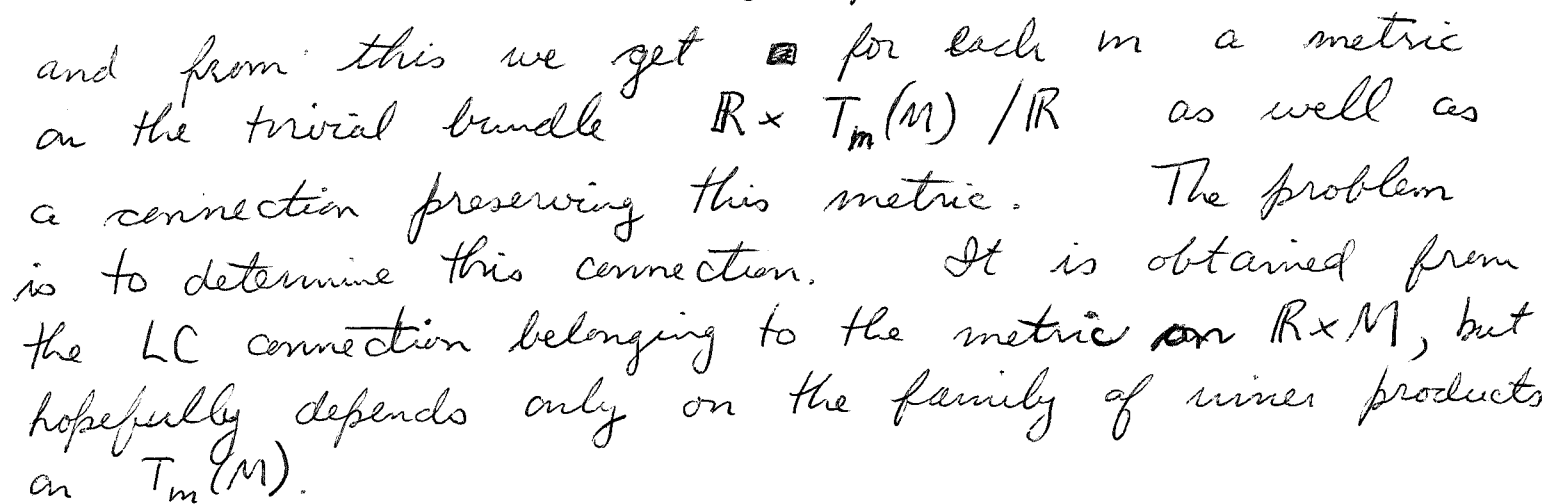 and from this we get for each m a metric
on the trivial bundle ℝ × T_m(M) / ℝ as well as
a connection preserving this metric. The problem
is to determine this connection. It is obtained from
the LC connection belonging to the metric on ℝ×M, but
hopefully depends only on the family of inner products
on T_m(M).